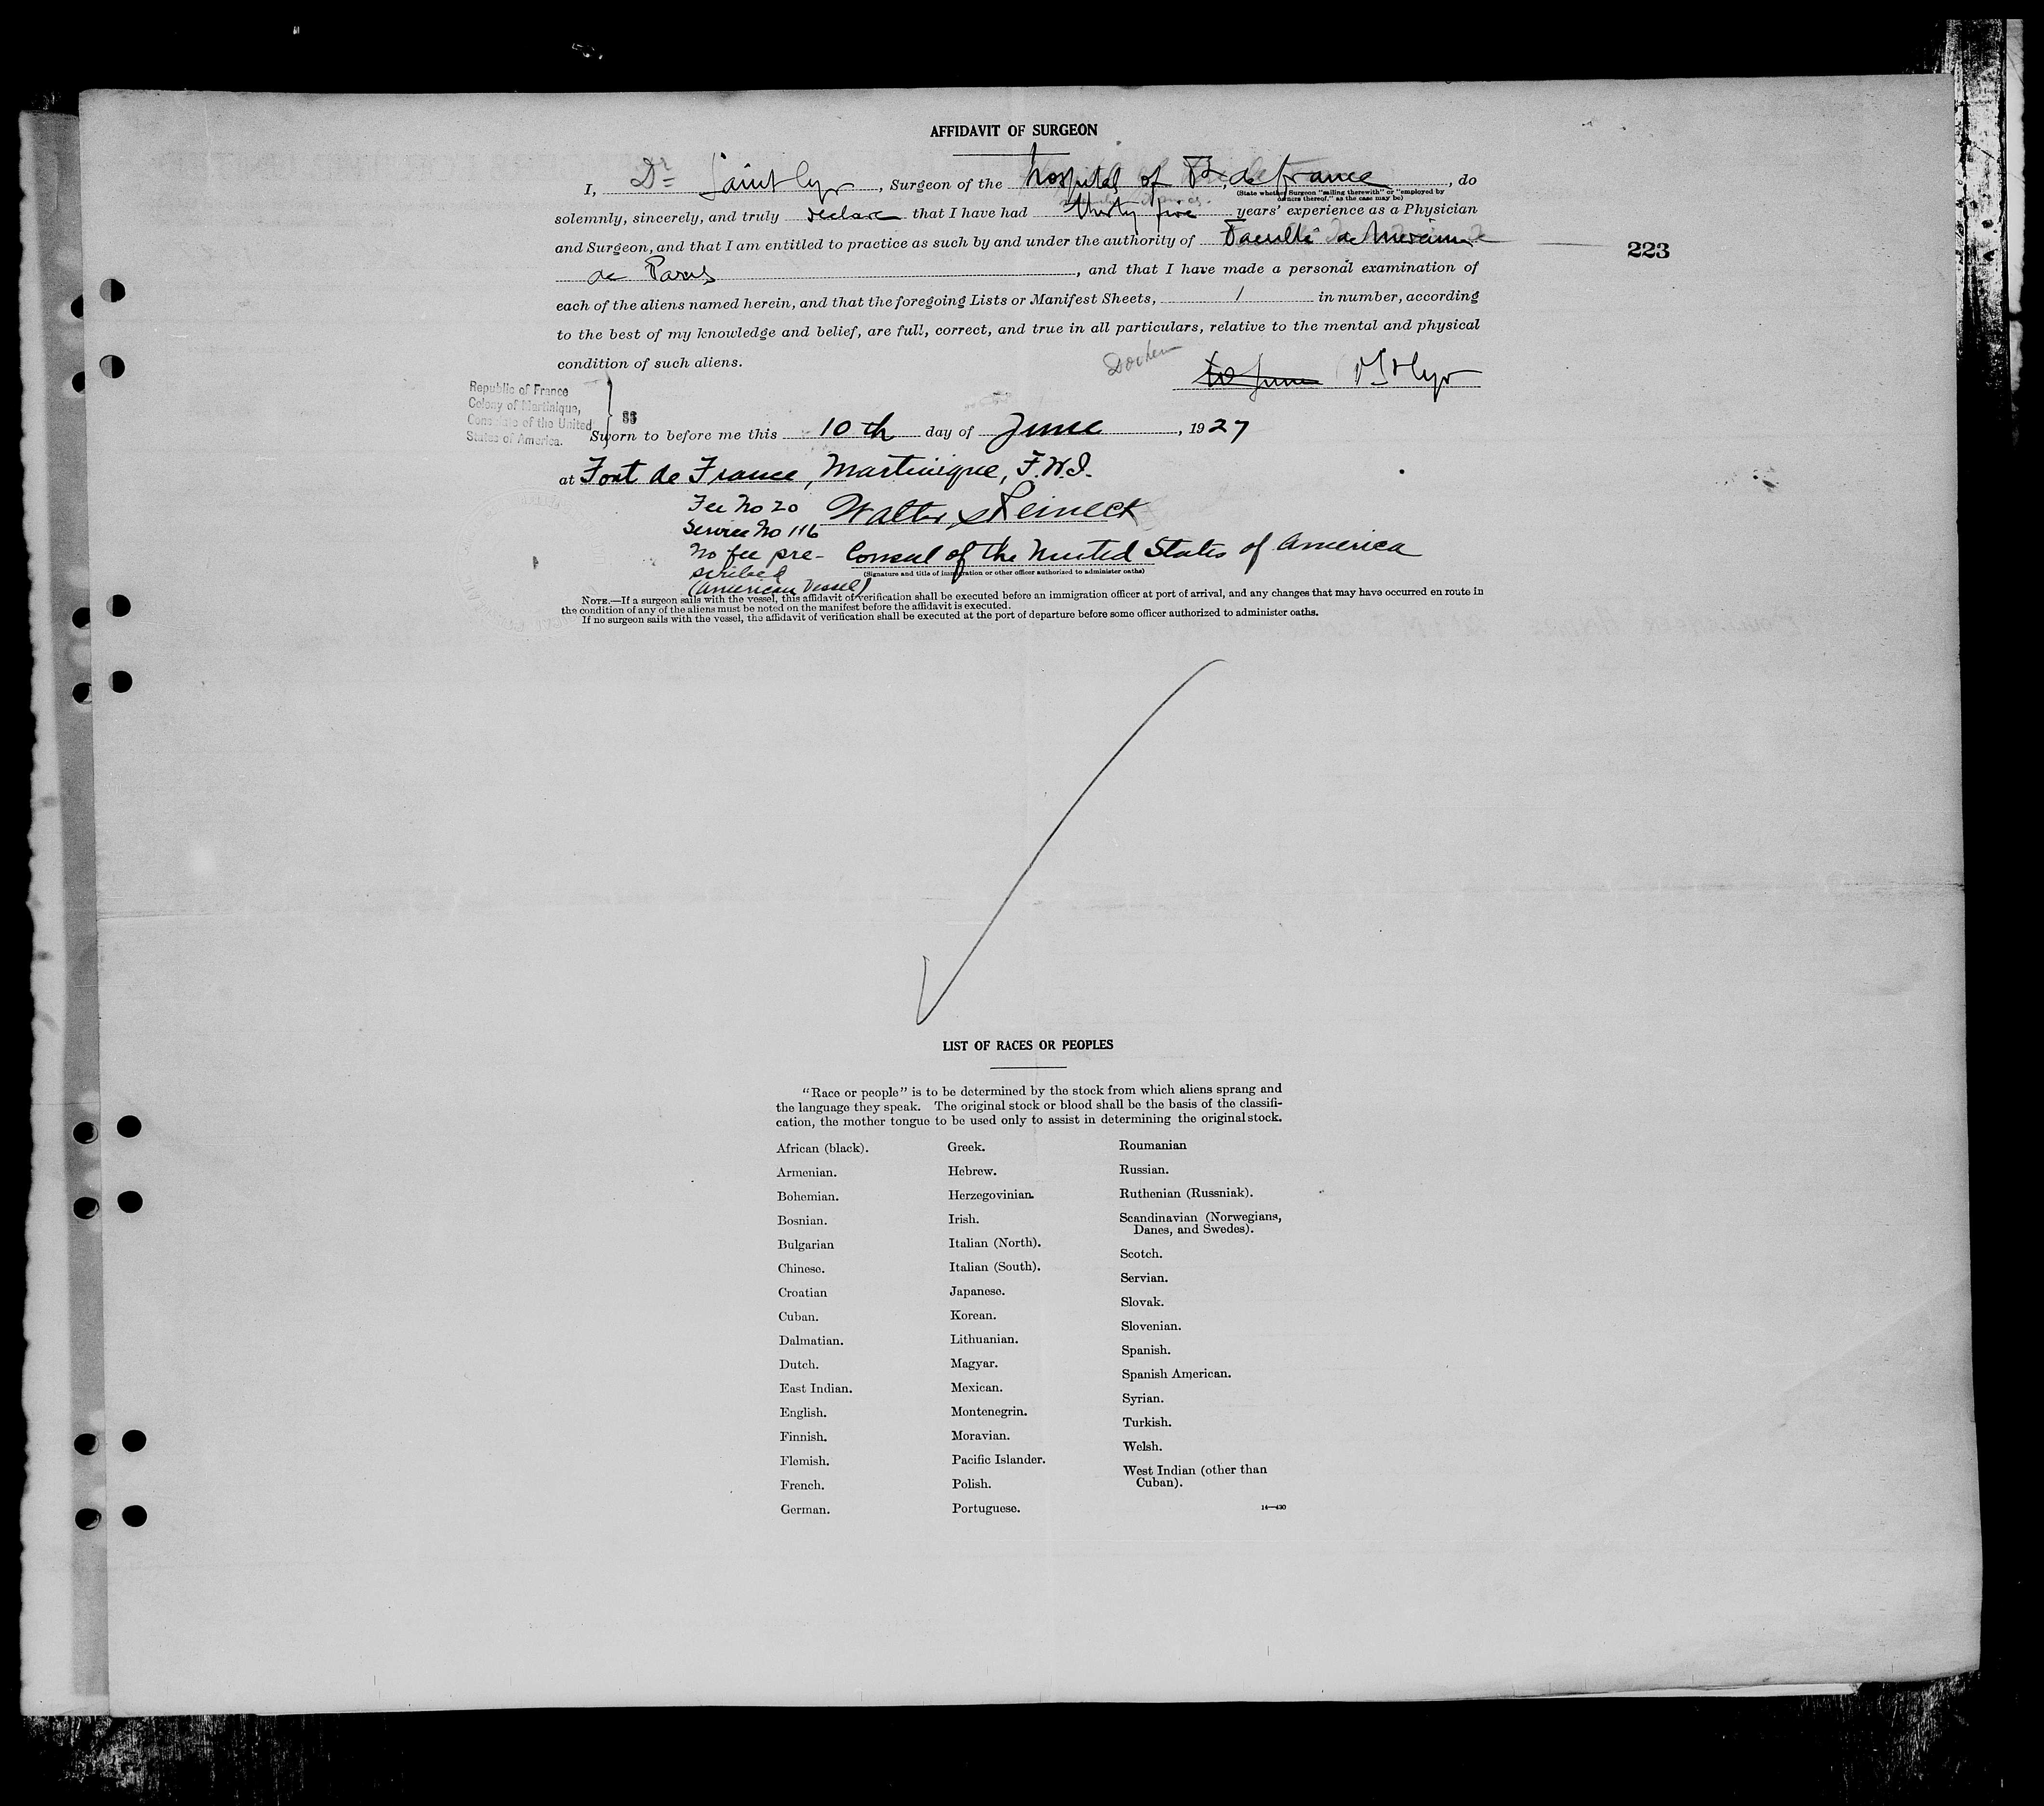 AFFIDAVIT OF SURGEON
I, Dr Saint Cyr, Surgeon of the hospital of Ft de france, do
(State whether Surgeon "sailing therewith" or "employed by
owners thereof," as the case may be)
solemnly, sincerely, and truly declare that I have had thirty five years' experience as a Physician
and Surgeon, and that I am entitled to practice as such by and under the authority of Faculté de Medecine
de Paris, and that I have made a personal examination of
each of the aliens named herein, and that the foregoing Lists or Manifest Sheets, 1 in number, according
to the best of my knowledge and belief, are full, correct, and true in all particulars, relative to the mental and physical
condition of such aliens.
223
Republic of France
Colony of Martinique,
Consulate of the United
States of America.
SS
Sworn to before me this 10th day of June, 1927
at Fort de France, Martinique, F.W.I.
Fee No 20 Walter S Reineck
Service No 116
No fee pre- Consul of the United States of America
scribed
(Signature and title of immigration or other officer authorized to administer oaths)
(American Vessel)
NOTE.—If a surgeon sails with the vessel, this affidavit of verification shall be executed before an immigration officer at port of arrival, and any changes that may have occurred en route in
the condition of any of the aliens must be noted on the manifest before the affidavit is executed.
If no surgeon sails with the vessel, the affidavit of verification shall be executed at the port of departure before some officer authorized to administer oaths.
LIST OF RACES OR PEOPLES
"Race or people" is to be determined by the stock from which aliens sprang and
the language they speak. The original stock or blood shall be the basis of the classifi-
cation, the mother tongue to be used only to assist in determining the original stock.
African (black).
Armenian.
Bohemian.
Bosnian.
Bulgarian
Chinese.
Croatian
Cuban.
Dalmatian.
Dutch.
East Indian.
English.
Finnish.
Flemish.
French.
German.
Greek.
Hebrew.
Herzegovinian.
Irish.
Italian (North).
Italian (South).
Japanese.
Korean.
Lithuanian.
Magyar.
Mexican.
Montenegrin.
Moravian.
Pacific Islander.
Polish.
Portuguese.
Roumanian
Russian.
Ruthenian (Russniak).
Scandinavian (Norwegians,
Danes, and Swedes).
Scotch.
Servian.
Slovak.
Slovenian.
Spanish.
Spanish American.
Syrian.
Turkish.
Welsh.
West Indian (other than
Cuban).
14—430